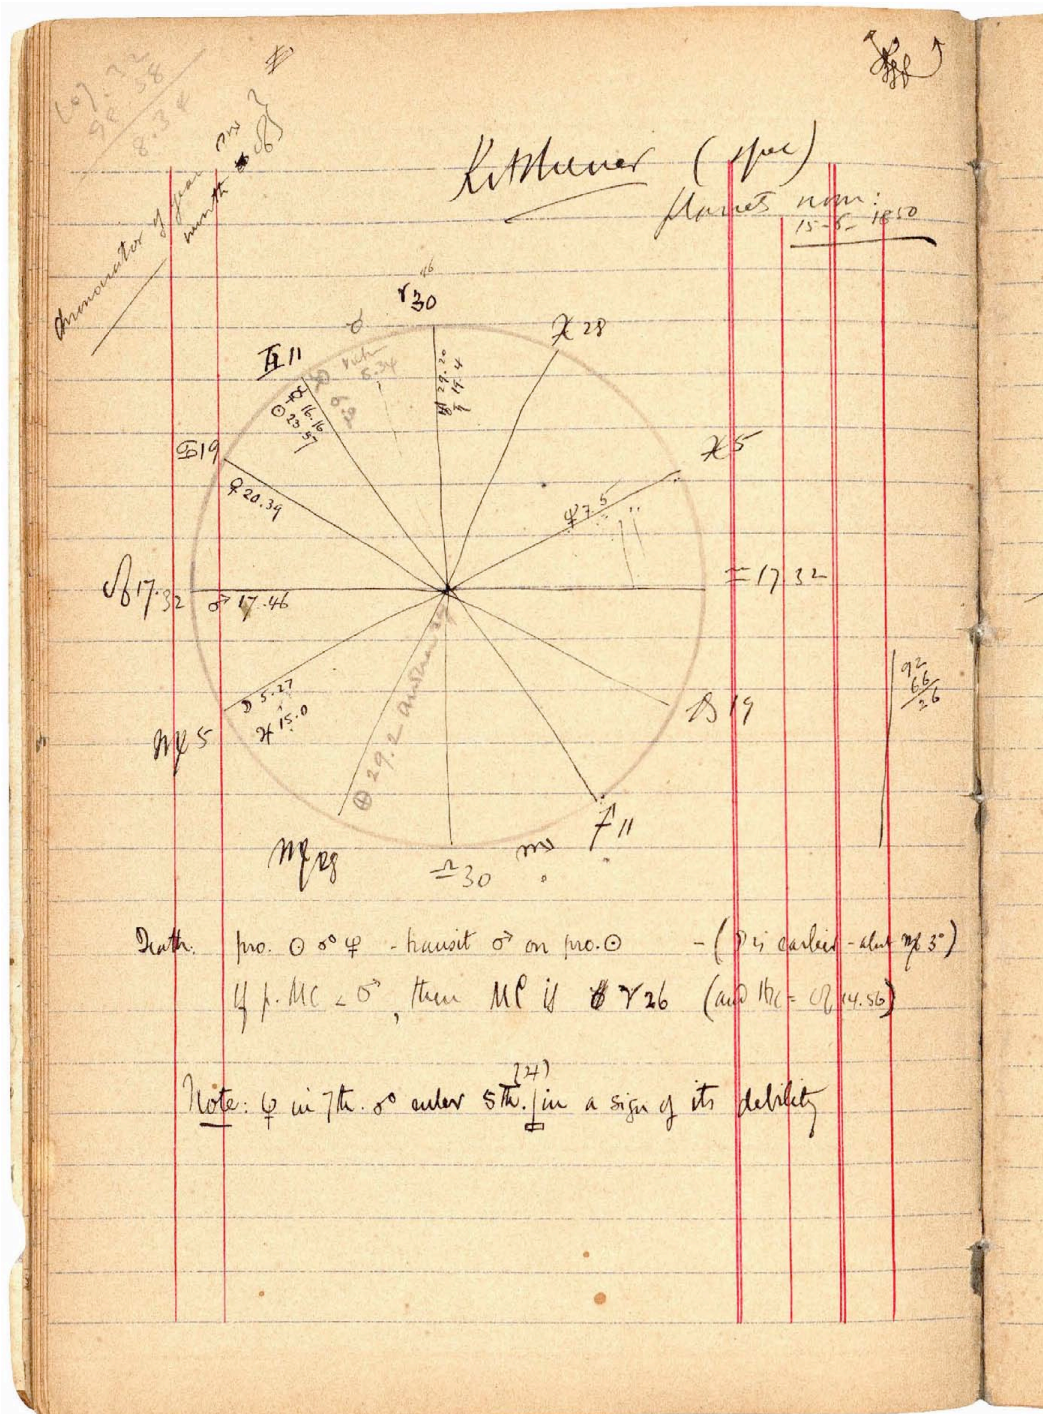 107.32
98.58
8.34
Kitchener (spec)
planets noon:
15-6-1850
♈ 30
26
♓ 28
♉
♊ 11
☿ 16.16
☉ 23.57
6.34
♅ 29.20
♄ 19.4
♋ 19
♀ 20.39
♓ 5
♆ 7.5
♌ 17.32
♂ 17.46
♒ 17 32
☽ 5.27
♃ 15.0
♍ 5
♑ 19
92
66
26
⊕ 29.2
♐ 11
♍ 28
♎ 30
♏
Death: pro. ☉ ☍ ♆ - transit ♂ on pro. ☉ - (☽ is earlier - about ♍ 3°)
If p. MC ∠ ♂, then MC is ♈ 26 (and Asc = ♌ 14.56)
(♃)
Note: ♆ in 7th. ☍ ruler 5th. / in a sign of its debility